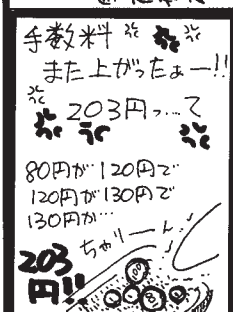 手数料
また上がったぁー!!
203円っ…て
80円が120円で
120円が130円で
130円が…
ちゃりーん
203
円!!